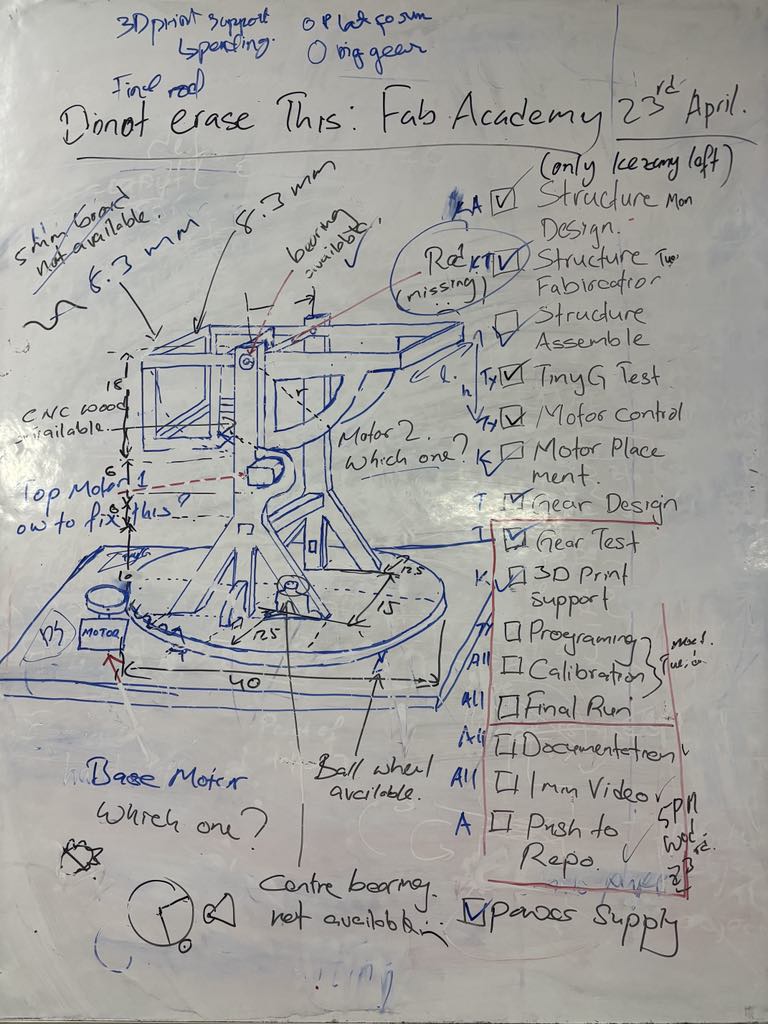 3D print support
↳pending.
O Platform
O big gear
Final rod
Do not erase This: Fab Academy 23rd April.
(only Kezamy left)
5mm board
not available.
8.3 mm
8.3 mm
bearing
available.
Rod
(missing)
KA ☑ Structure Mon
Design.
KT ☑ Structure Tue
Fabrication
☑ Structure
Assemble
Ty ☑ TinyG Test
Ty ☑ Motor Control
K ☑ Motor Place
ment.
T ☑ Gear Design
T ☑ Gear Test
K ☑ 3D Print
support
Ty ☐ Programing
All ☐ Calibration
All ☐ Final Run
All ☐ Documentation
All ☐ 1 min Video
A ☐ Push to
Repo.
5PM
Wed
23rd.
☑ power supply
18
CNC wood
available
r
l
h
Motor 2.
which one?
Top Motor 1
ow to fix this?
6
6
10
TinyG
12.5
15
12.5
MOTOR
40
Base Motor
Which one?
Ball wheel
available.
Centre bearing.
not available